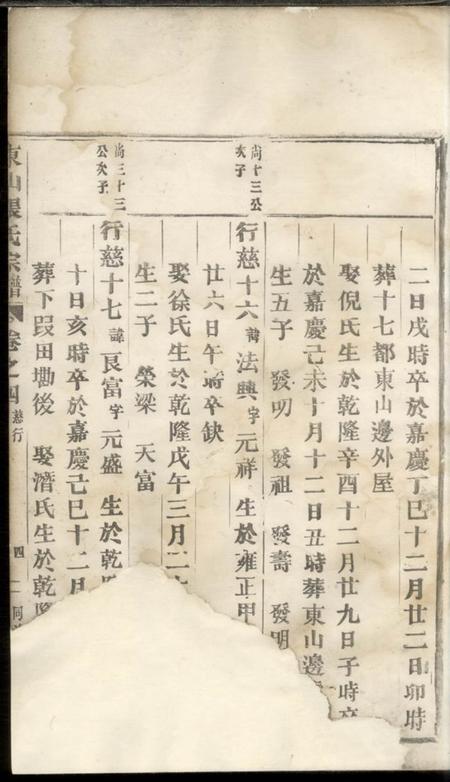 二日戌時卒於嘉慶丁巳十二月廿二日卯時
葬十七都東山邊外屋
娶倪氏生於乾隆辛酉十二月廿九日子時卒
於嘉慶己未十月十二日丑時葬東山邊
生五子 發叨 發祖 發壽 發明
尚十三公
次子
行慈十六諱法興字元祥 生於雍正甲
廿六日午時卒缺
娶徐氏生於乾隆戊午三月二十
生二子 榮梁 天富
尚三十三
公次子
行慈十七諱良富字元盛 生於乾
十日亥時卒於嘉慶己巳十二月
葬下段田墈後 娶潛氏生於乾隆
東山張氏宗譜 卷之四 慈行 四